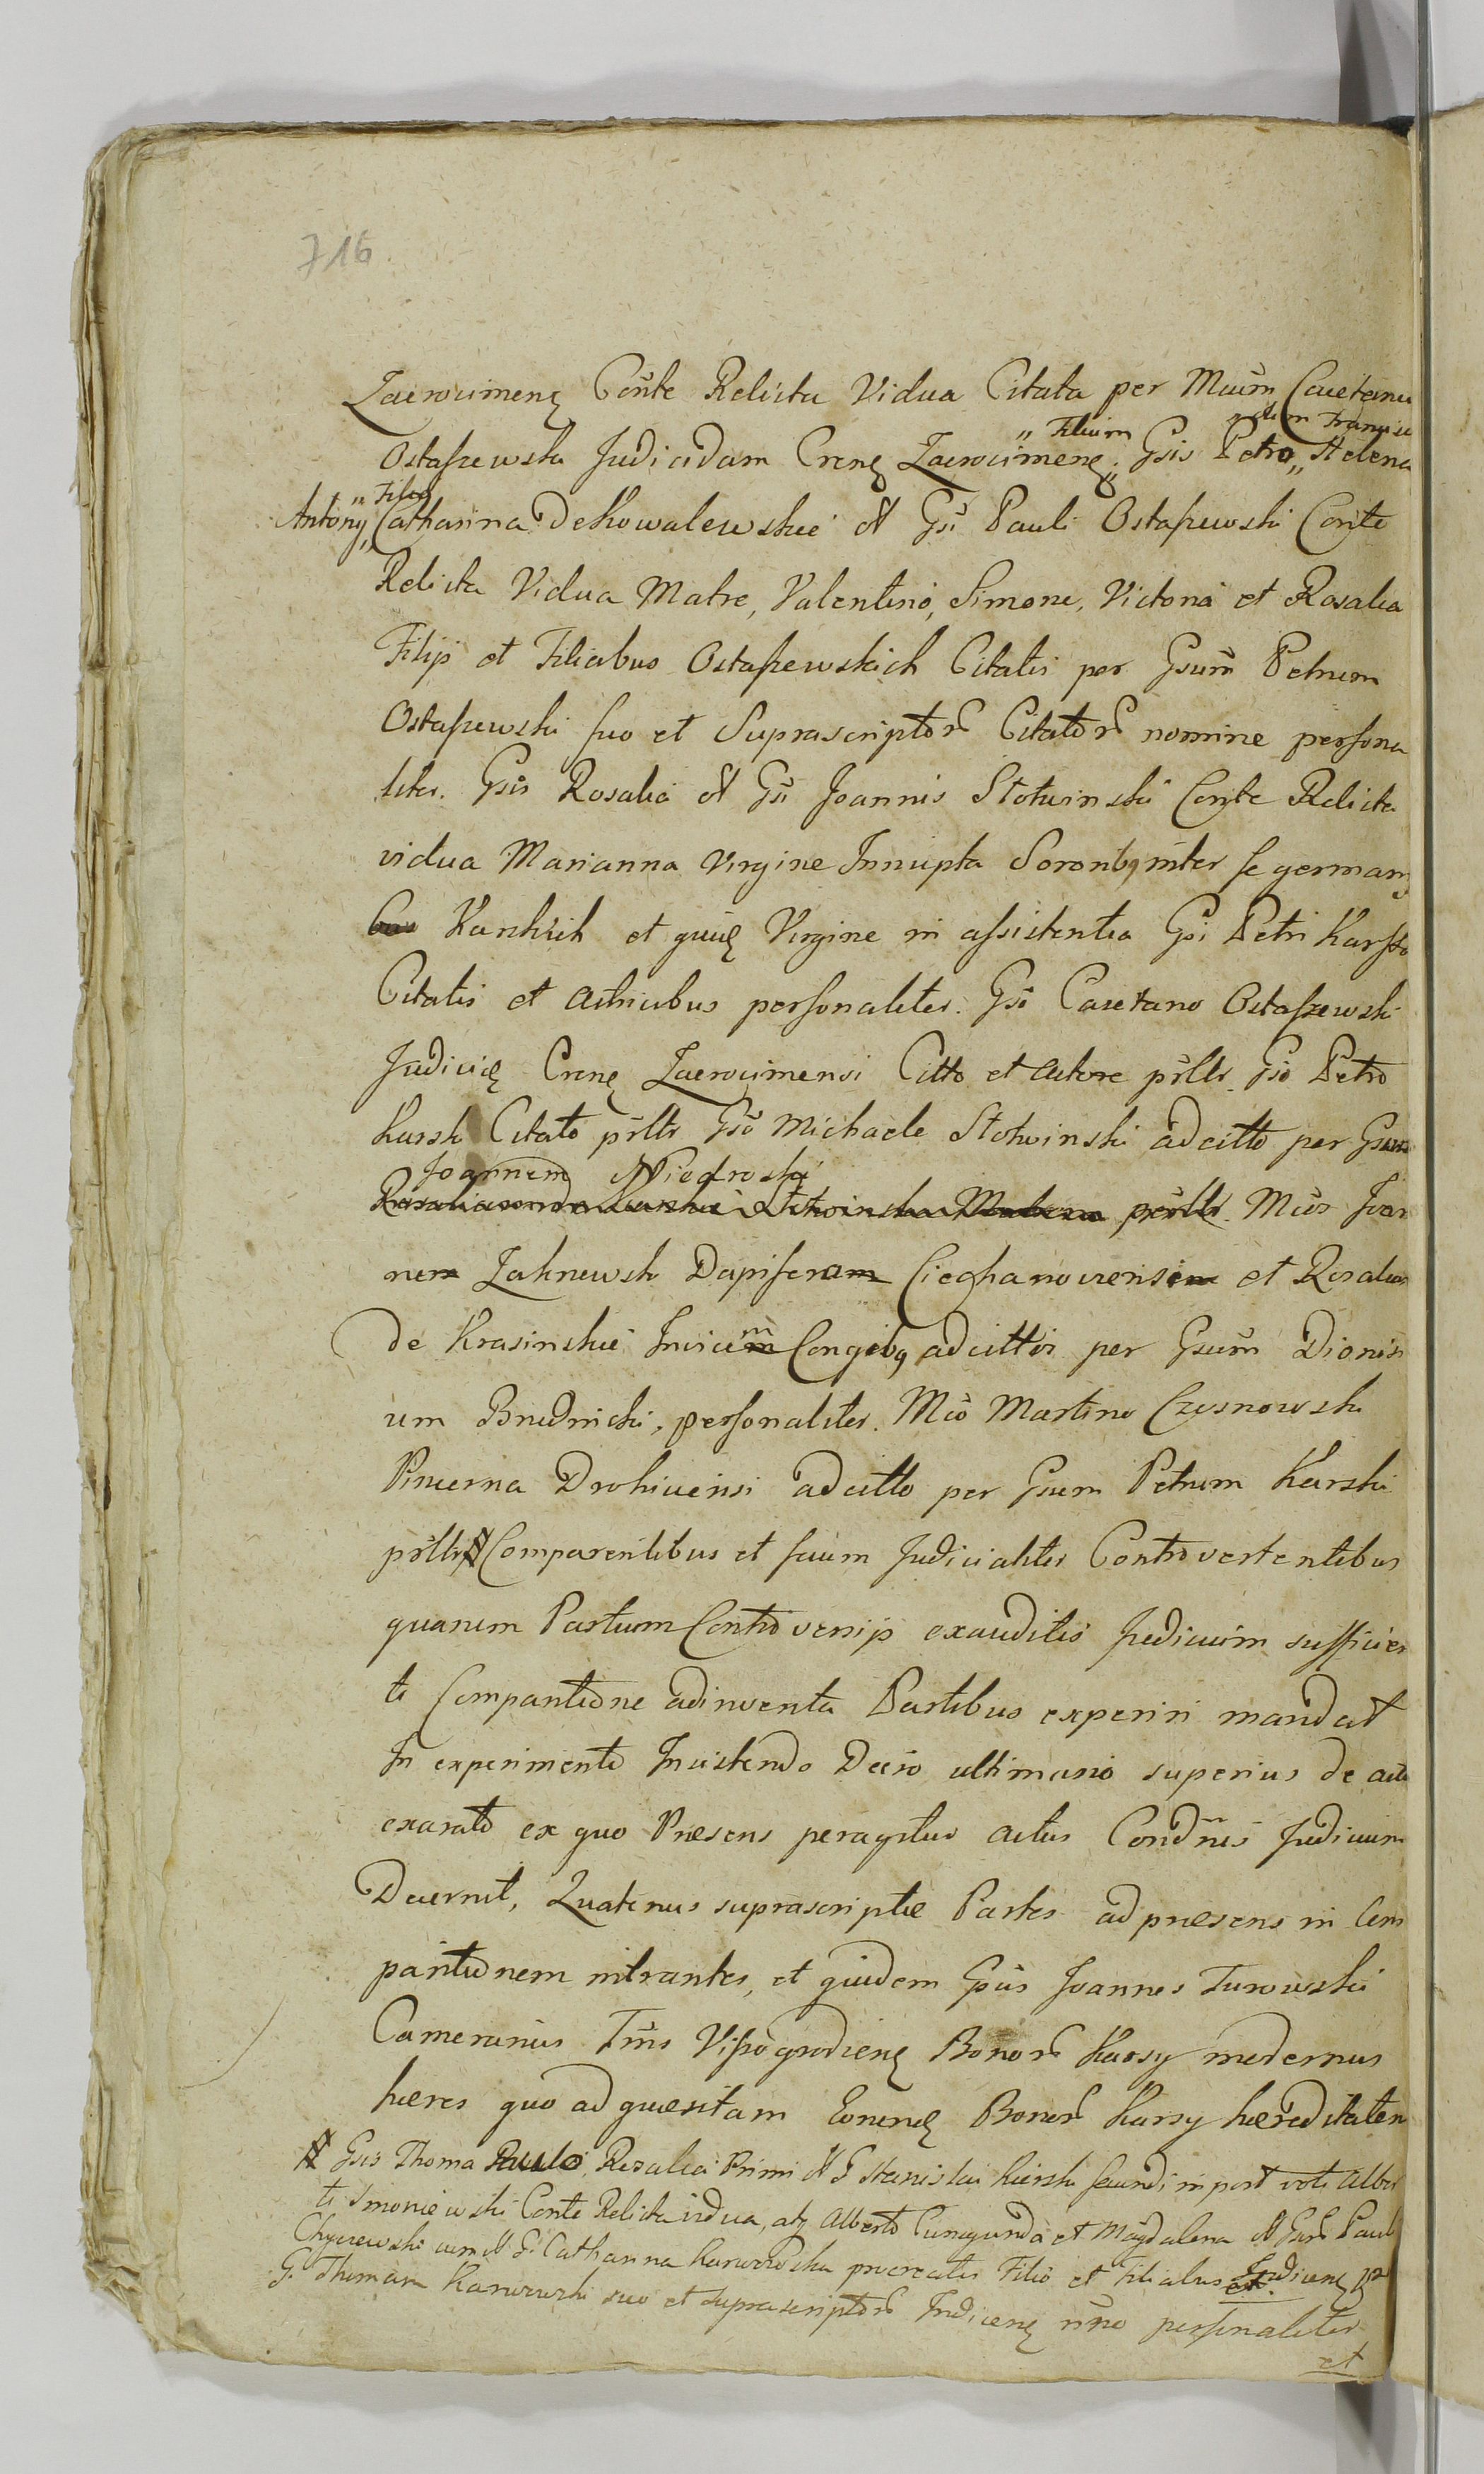 716.
Zacrocimen Conte Relicta Vidua Citata per Mcum Caietanu
„ Filium
Ostaszewski Judicidam Cren Zacrocimen. Gsis Petro „ Helena
„ Filio
Antony „ Catharina de Kowalewskie et Gsi Pauli Ostaszewski Conte
Relicta Vidua Matre, Valentino, Simone, Victoria et Rosalia
Filijs et Filiabus Ostaszewskich Citatis per Gsum Petrum
Ostaszewski suo et Suprascriptor Citator nomine persona
liter. Gsis Rosalia et Gsi Joannis Stotwinski Conte Relicta
vidua Marianna Virgine Innupta Sororibq inter se german
Karskich et Virgine in assistentia Gsi Petri Karski
Citatis et Actricibus personaliter. Gso Caietano Ostaszewski
Judici Cren Zacrocimensi Citto et Actore psllr. Gso Petro
Karski Citato psllr Gso Michaele Stotwinski adcitto per Gsum
Joannem Niedroski
psllr. Mcis Joan
nem Zaknewski Dapiferam Ciechanoviensem et Rosalia
de Krasinskie Invicem Congibq adcittis per Gsum Dionisi
um Brudnicki, personaliter. Mco Martino Czosnowski
Pincerna Drohicensi adcitto per Gsum Petrum Karski
psllr Comparentibus et suum Judicialiter Controvertentibus
quarum Partium Controversijs exauditis Judicium sufficien
ti Comparitione adinventa Partibus experiri mandat
In experimento Insistendo Decro ultimario superius de actu
exarato ex quo Presens peragitur actus Condnis Judicium
Decernit, Quatenus suprascriptae Partes ad praesens in Com
paritionem intrantes, et quidem Gsus Joannes Turowski
Camerarius Trris Wyszogrodien Bonor Karsy modernus
haeres quo ad quaesitam Bonor Karsy haereditatem
Gsis Thoma Paulo, Rosalia Primi et G Stanislai Karski secundi in post voti Alber
ti Smoniewski Conte Relicta vidua, atq Alberto Cunegunda et Magdalena et Gsor Pauli
Chyczewski cum et G. Catharina Karwowska procreatis Filio et Filiabus Indicen per
G. Thomam Karwowski suo et suprascriptor Indicen nno personaliter
et